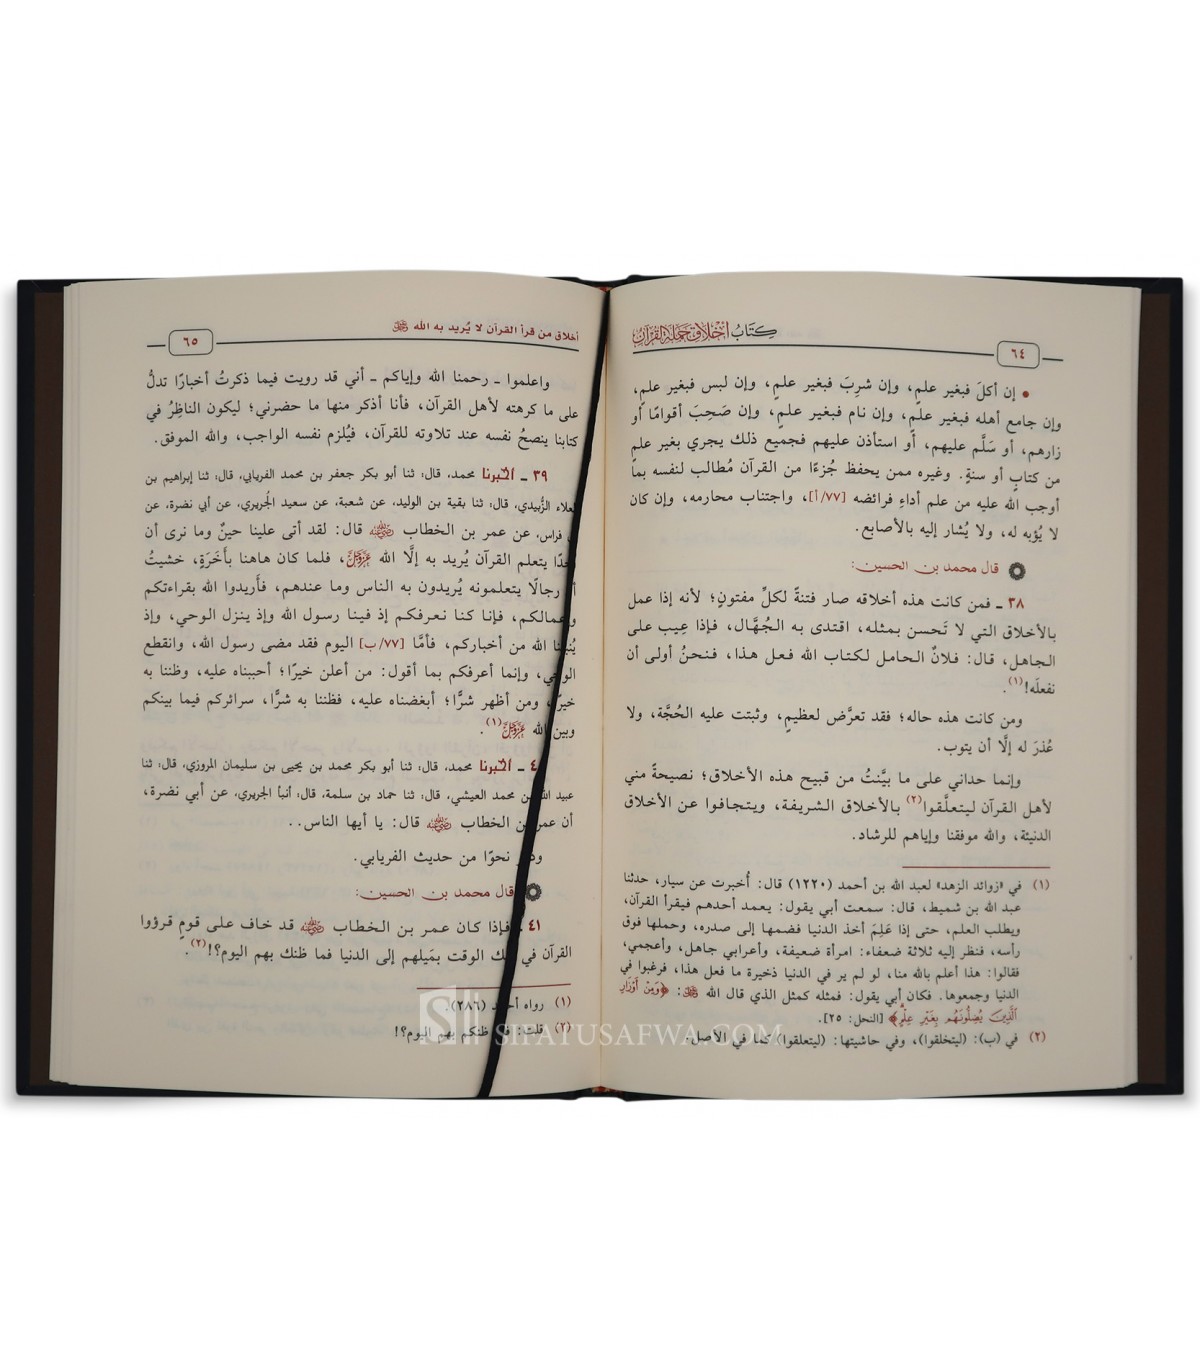 كتاب أخلاق حملة القرآن
٦٤
• إن أكلَ فبغير علمٍ، وإن شربَ فبغير علمٍ، وإن لبس فبغير علمٍ،
وإن جامع أهله فبغير علمٍ، وإن نام فبغير علمٍ، وإن صَحِبَ أقوامًا أو
زارهم، أو سَلَّم عليهم، أو استأذن عليهم فجميع ذلك يجري بغير علمٍ
من كتابٍ أو سنةٍ. وغيره ممن يحفظ جُزءًا من القرآن مُطالب لنفسه بما
أوجب الله عليه من علم أداءِ فرائضه [٧٧/أ]، واجتناب محارمه، وإن كان
لا يُؤبه له، ولا يُشار إليه بالأصابع.
قال محمد بن الحسين:
٣٨ ـ فمن كانت هذه أخلاقه صار فتنةً لكلِّ مفتونٍ؛ لأنه إذا عمل
بالأخلاق التي لا تَحسن بمثله، اقتدى به الجُهَّال، فإذا عِيب على
الجاهل، قال: فلانٌ الحامل لكتاب الله فعل هذا، فنحنُ أولى أن
نفعلَه!(١).
ومن كانت هذه حاله؛ فقد تعرَّض لعظيمٍ، وثبتت عليه الحُجَّة، ولا
عُذرَ له إلَّا أن يتوب.
وإنما حداني على ما بيَّنتُ من قبيح هذه الأخلاق؛ نصيحةً مني
لأهل القرآن ليتعلَّقوا(٢) بالأخلاق الشريفة، ويتجافوا عن الأخلاق
الدنيئة، والله موفقنا وإياهم للرشاد.
(١) في «زوائد الزهد» لعبد الله بن أحمد (١٢٢٠) قال: أُخبرت عن سيار، حدثنا
عبد الله بن شميط، قال: سمعت أبي يقول: يعمد أحدهم فيقرأ القرآن،
ويطلب العلم، حتى إذا عَلِمَ أخذ الدنيا فضمها إلى صدره، وحملها فوق
رأسه، فنظر إليه ثلاثة ضعفاء: امرأة ضعيفة، وأعرابي جاهل، وأعجمي،
فقالوا: هذا أعلم بالله منا، لو لم ير في الدنيا ذخيرة ما فعل هذا، فرغبوا في
الدنيا وجمعوها. فكان أبي يقول: فمثله كمثل الذي قال الله ﷻ: ﴿وَمِنْ أَوْزَارِ
الَّذِينَ يُضِلُّونَهُم بِغَيْرِ عِلْمٍ﴾ [النحل: ٢٥].
(٢) في (ب): (ليتخلقوا)، وفي حاشيتها: (ليتعلقوا) كما في الأصل.
أخلاق من قرأ القرآن لا يُريد به الله ﷻ
٦٥
واعلموا ـ رحمنا الله وإياكم ـ أني قد رويت فيما ذكرتُ أخبارًا تدلُّ
على ما كرهته لأهل القرآن، فأنا أذكر منها ما حضرني؛ ليكون الناظِرُ في
كتابنا ينصحُ نفسه عند تلاوته للقرآن، فيُلزم نفسه الواجب، والله الموفق.
٣٩ ـ أخبرنا محمد، قال: ثنا أبو بكر جعفر بن محمد الفريابي، قال: ثنا إبراهيم بن
العلاء الزُّبيدي، قال: ثنا بقية بن الوليد، عن شعبة، عن سعيد الجُريري، عن أبي نضرة، عن
فراس، عن عمر بن الخطاب رضي الله عنه قال: لقد أتى علينا حينٌ وما نرى أن
أحدًا يتعلم القرآن يُريد به إلَّا الله عز وجل، فلما كان هاهنا بأَخَرَةٍ، خشيتُ
رجالًا يتعلمونه يُريدون به الناس وما عندهم، فأَريدوا الله بقراءتكم
وأعمالكم، فإنا كنا نعرفكم إذ فينا رسول الله وإذ ينزل الوحي، وإذ
يُنبئنا الله من أخباركم، فأمَّا [٧٧/ب] اليوم فقد مضى رسول الله، وانقطع
الوحي، وإنما أعرفكم بما أقول: من أعلن خيرًا؛ أحببناه عليه، وظننا به
خيرًا، ومن أظهر شرًّا؛ أبغضناه عليه، فظننا به شرًّا، سرائركم فيما بينكم
وبين الله عز وجل(١).
ـ أخبرنا محمد، قال: ثنا أبو بكر محمد بن يحيى بن سليمان المروزي، قال: ثنا
عبيد الله بن محمد العيشي، قال: ثنا حماد بن سلمة، قال: أنبأ الجريري، عن أبي نضرة،
أن عمر بن الخطاب رضي الله عنه قال: يا أيها الناس..
وذكر نحوًا من حديث الفريابي.
قال محمد بن الحسين:
٤١ ـ فإذا كان عمر بن الخطاب رضي الله عنه قد خاف على قومٍ قرؤوا
القرآن في ذلك الوقت بمَيلهم إلى الدنيا فما ظنك بهم اليوم؟!(٢).
(١) رواه أحمد (٢٨٦).
(٢) قلت: فما ظنكم بهم اليوم؟!
SIFATUSAFWA.COM